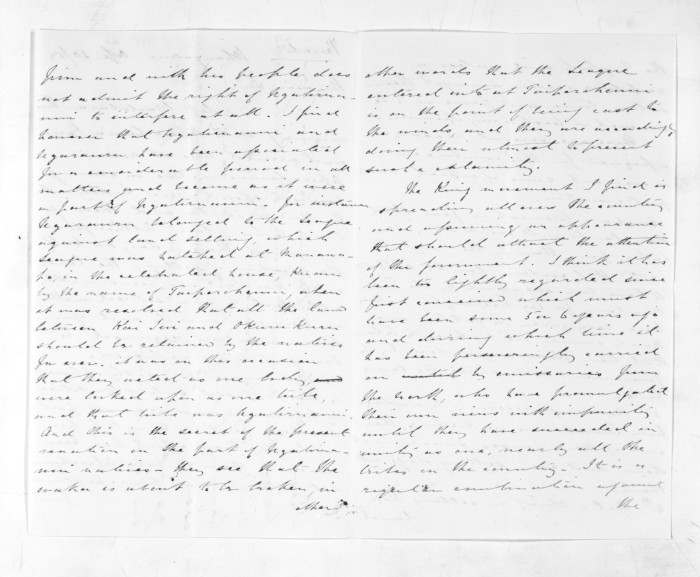 firm and with his people does
not admit the right of Ngatirua-
nui to interfere at all. I find
however that Ngatiruanui and
Ngarauru have been associated
for a considerable period in all
matters and become as it were
a part of Ngatiruanui. For instance
Ngarauru belonged to the League
against land selling, which
League was hatched at Manawa-
pa, in the celebrated house, known
by the name of Taiporohenui, when
it was resolved that all the land
between Kai Iwi and Okurukuru
should be retained by the natives
for ever. it was on this occasion
that they acted as one body,
were looked upon as one tribe,
and that tribe was Ngatiruanui.
And this is the secret of the present
on the part of Ngatirua-
nui natives - they see that the
is about to be broken, in
other
other words that the League
entered into at Taiporohenui
is on the point of being cast to
the winds, and they are accordingly
doing their utmost to prevent
such a calamity.
The King movement I find is
spreading all over the country
and assuming an appearance
that should attract the attention
of the Government. I think it has
been too lightly regarded since
first conceived which must
have been some 5 or 6 years ago
and during which time it
has been perseveringly carried
on by emissaries from
the North, who have promulgated
their own views with impunity
until they have succeeded in
uniting as one, nearly all the
tribes in the country. It is a
regular combination against
the